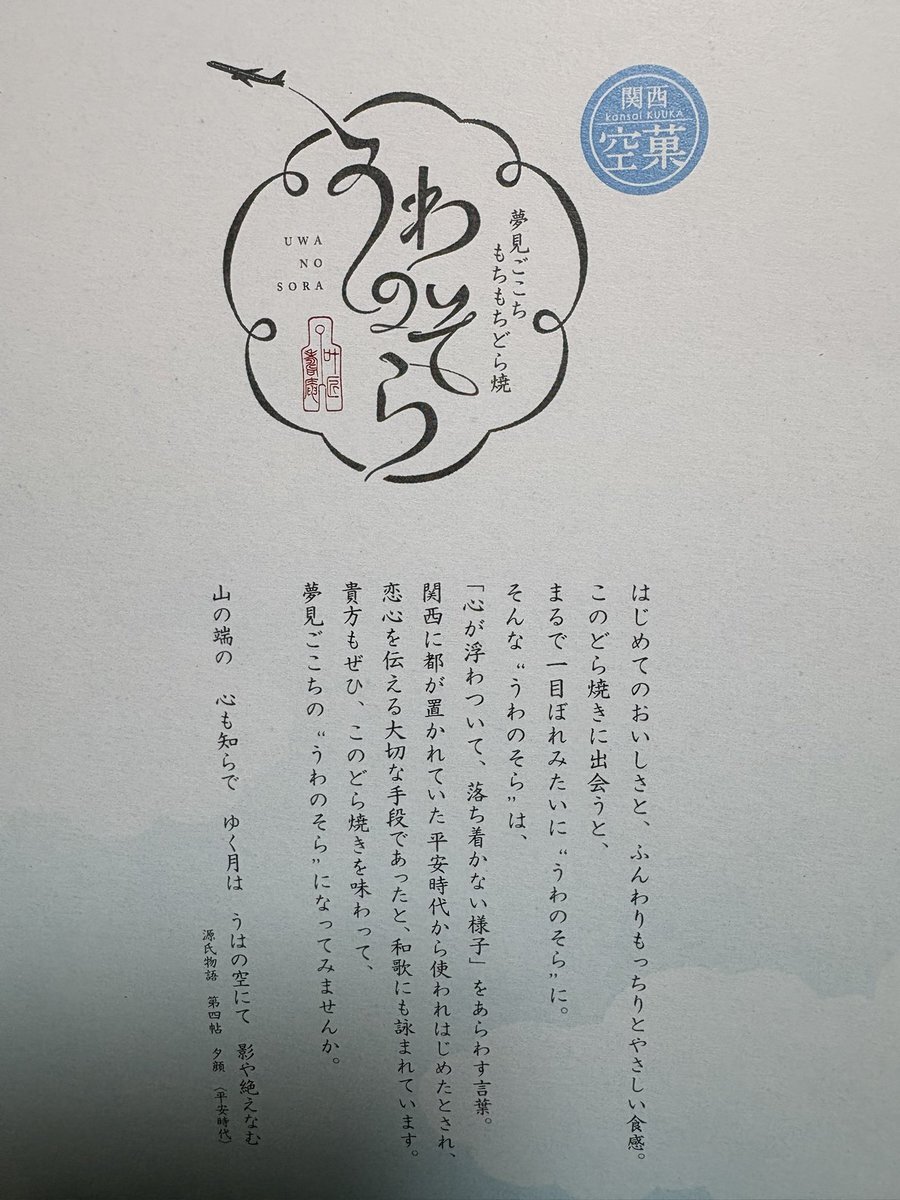 関西
kansai KUUKA
空菓
夢見ごこち
もちもちどら焼
うわのそら
UWA
NO
SORA
叶匠
壽庵
はじめてのおいしさと、ふんわりもっちりとやさしい食感。
このどら焼きに出会うと、
まるで一目ぼれみたいに“うわのそら”に。
そんな“うわのそら”は、
「心が浮わついて、落ち着かない様子」をあらわす言葉。
関西に都が置かれていた平安時代から使われはじめたとされ、
恋心を伝える大切な手段であったと、和歌にも詠まれています。
貴方もぜひ、このどら焼きを味わって、
夢見ごこちの“うわのそら”になってみませんか。
山の端の　心も知らで　ゆく月は　うはの空にて　影や絶えなむ
源氏物語　第四帖　夕顔　（平安時代）